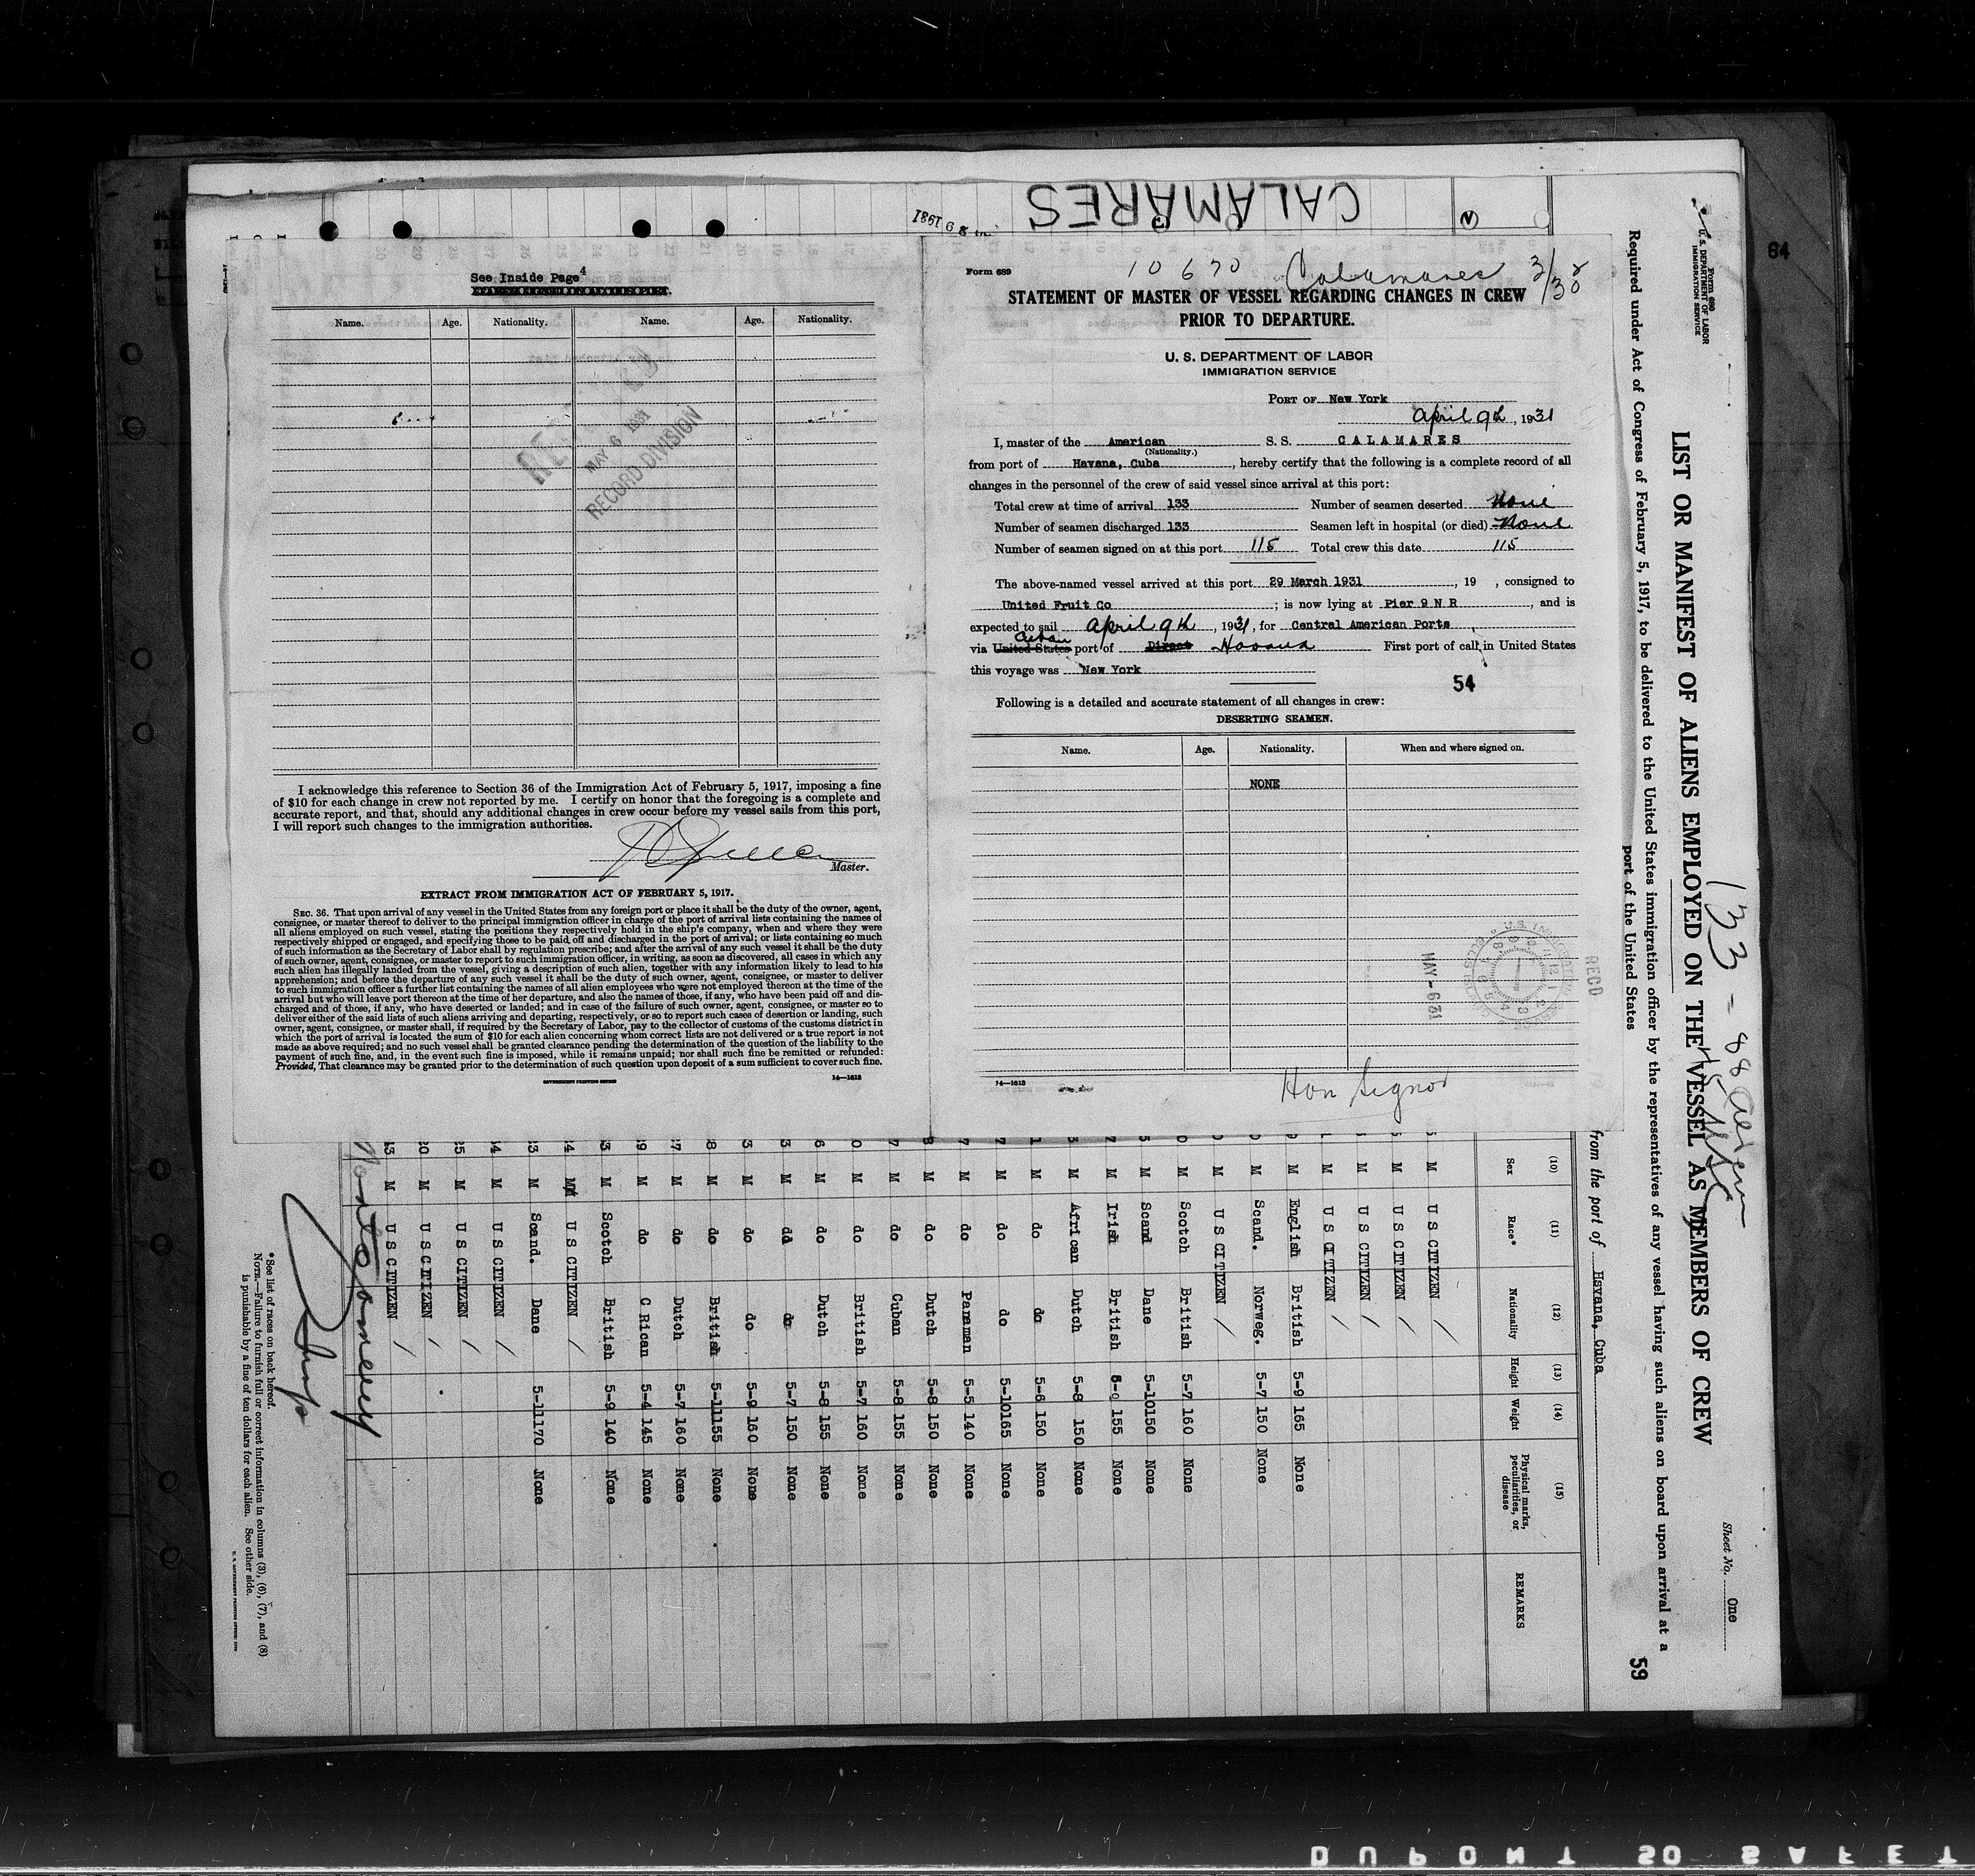 CALAMARES
64
See Inside Page 4
Name. Age. Nationality. Name. Age. Nationality.
MAY 6 1931
RECORD DIVISION
I acknowledge this reference to Section 36 of the Immigration Act of February 5, 1917, imposing a fine
of $10 for each change in crew not reported by me. I certify on honor that the foregoing is a complete and
accurate report, and that, should any additional changes in crew occur before my vessel sails from this port,
I will report such changes to the immigration authorities.
Master.
EXTRACT FROM IMMIGRATION ACT OF FEBRUARY 5, 1917.
SEC. 36. That upon arrival of any vessel in the United States from any foreign port or place it shall be the duty of the owner, agent,
consignee, or master thereof to deliver to the principal immigration officer in charge of the port of arrival lists containing the names of
all aliens employed on such vessel, stating the positions they respectively hold in the ship's company, when and where they were
respectively shipped or engaged, and specifying those to be paid off and discharged in the port of arrival; or lists containing so much
of such information as the Secretary of Labor shall by regulation prescribe; and after the arrival of any such vessel it shall be the duty
of such owner, agent, consignee, or master to report to such immigration officer, in writing, as soon as discovered, all cases in which any
such alien has illegally landed from the vessel, giving a description of such alien, together with any information likely to lead to his
apprehension; and before the departure of any such vessel it shall be the duty of such owner, agent, consignee, or master to deliver
to such immigration officer a further list containing the names of all alien employees who were not employed thereon at the time of the
arrival but who will leave port thereon at the time of her departure, and also the names of those, if any, who have been paid off and dis-
charged and of those, if any, who have deserted or landed; and in case of the failure of such owner, agent, consignee, or master so to
deliver either of the said lists of such aliens arriving and departing, respectively, or so to report such cases of desertion or landing, such
owner, agent, consignee, or master shall, if required by the Secretary of Labor, pay to the collector of customs of the customs district in
which the port of arrival is located the sum of $10 for each alien concerning whom correct lists are not delivered or a true report is not
made as above required; and no such vessel shall be granted clearance pending the determination of the question of the liability to the
payment of such fine, and, in the event such fine is imposed, while it remains unpaid; nor shall such fine be remitted or refunded:
Provided, That clearance may be granted prior to the determination of such question upon deposit of a sum sufficient to cover such fine.
GOVERNMENT PRINTING OFFICE 14—1613
Form 689
10670 Calamares 3/30
STATEMENT OF MASTER OF VESSEL REGARDING CHANGES IN CREW
PRIOR TO DEPARTURE.
U. S. DEPARTMENT OF LABOR
IMMIGRATION SERVICE
PORT OF New York
April 9th, 1931
I, master of the American S. S. CALAMARES
(Nationality.)
from port of Havana, Cuba, hereby certify that the following is a complete record of all
changes in the personnel of the crew of said vessel since arrival at this port:
Total crew at time of arrival 133 Number of seamen deserted None
Number of seamen discharged 133 Seamen left in hospital (or died) None
Number of seamen signed on at this port 115 Total crew this date 115
The above-named vessel arrived at this port 29 March 1931, 19 , consigned to
United Fruit Co; is now lying at Pier 9 N R, and is
expected to sail April 9th, 1931, for Central American Ports
Cuban
via United States port of Direct Havana First port of call in United States
this voyage was New York
54
Following is a detailed and accurate statement of all changes in crew:
DESERTING SEAMEN.
Name. Age. Nationality. When and where signed on.
NONE
RECD
MAY-6 31
14—1613
Form 680
U. S. DEPARTMENT OF LABOR
IMMIGRATION SERVICE
Sheet No. One
133 - 88 Alien
LIST OR MANIFEST OF ALIENS EMPLOYED ON THE VESSEL AS MEMBERS OF CREW
Required under Act of Congress of February 5, 1917, to be delivered to the United States immigration officer by the representatives of any vessel having such aliens on board upon arrival at a
port of the United States
59
from the port of Havana, Cuba
(10) (11) (12) (13) (14) (15)
Sex Race* Nationality Height Weight Physical marks, peculiarities, or disease REMARKS
M U S CITIZEN
M U S CITIZEN
M U S CITIZEN
M U S CITIZEN
M English British 5-9 165 None
M Scand. Norweg. 5-7 150 None
M U S CITIZEN
M Scotch British 5-7 160 None
M Scand Dane 5-10 150 None
M Irish British 5-9 155 None
M African Dutch 5-8 150 None
M do do 5-6 150 None
M do do 5-10 165 None
M do Panaman 5-5 140 None
M do Dutch 5-8 150 None
M do Cuban 5-8 155 None
M do British 5-7 160 None
M do Dutch 5-8 155 None
M dd do 5-7 150 None
M do do 5-9 160 None
M do British 5-11 155 None
M do Dutch 5-7 160 None
M do C Rican 5-4 145 None
M Scotch British 5-9 140 None
M U S CITIZEN
M Scand. Dane 5-11 170 None
M U S CITIZEN
M U S CITIZEN
M U S CITIZEN
M U S CITIZEN
Montgomery
*See list of races on back hereof.
NOTE.—Failure to furnish full or correct information in columns (3), (6), (7), and (8)
is punishable by a fine of ten dollars for each alien. See other side.
DUPONT SO SAFET